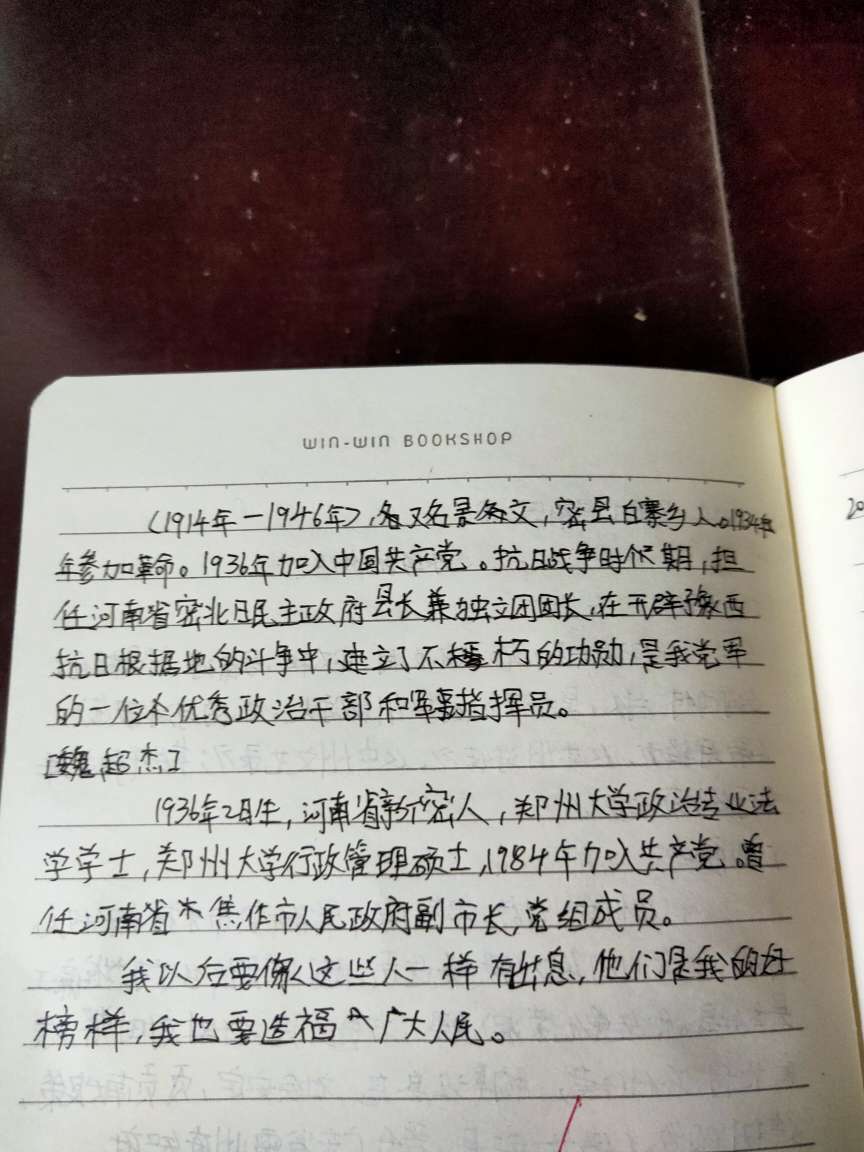 WIN-WIN BOOKSHOP
(1914年-1946年),又名景文,密县白寨乡人。1934年
年参加革命。1936年加入中国共产党。抗日战争时候期,担
任河南省密北日民主政府县长兼独立团团长,在开辟豫西
抗日根据地的斗争中,建立了不朽的功勋,是我党军
的一位优秀政治干部和军事指挥员。
[魏超杰]
1936年2月生,河南省新密人,郑州大学政治专业法
学学士,郑州大学行政管理硕士,1984年加入共产党。曾
任河南省焦作市人民政府副市长,党组成员。
我以后要像这些人一样有出息,他们是我的好
榜样,我也要造福广大人民。
20